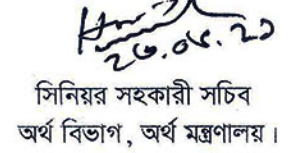 ২৬.০৮.২১
সিনিয়র সহকারী সচিব
অর্থ বিভাগ, অর্থ মন্ত্রণালয়।